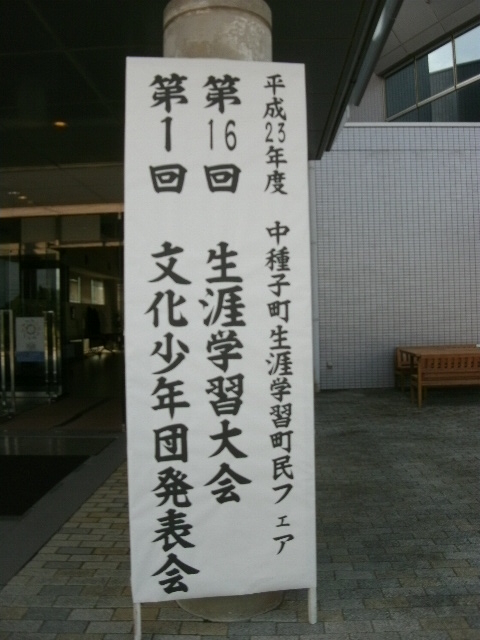 平成23年度 中種子町生涯学習町民フェア
第16回 生涯学習大会
第1回 文化少年団発表会